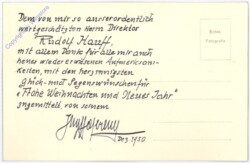 Dem von mir so ausserordentlich
wertgeschätzten Herrn Direktor
Rudolf Hauff
mit allem Danke für alle mir auch
heuer wieder erwiesenen Aufmerksam-
keiten, mit den herzinnigsten
Glück- und Segenswünschen für
"Frohe Weihnachten und Neues Jahr"
zugemittelt, von seinem
1930